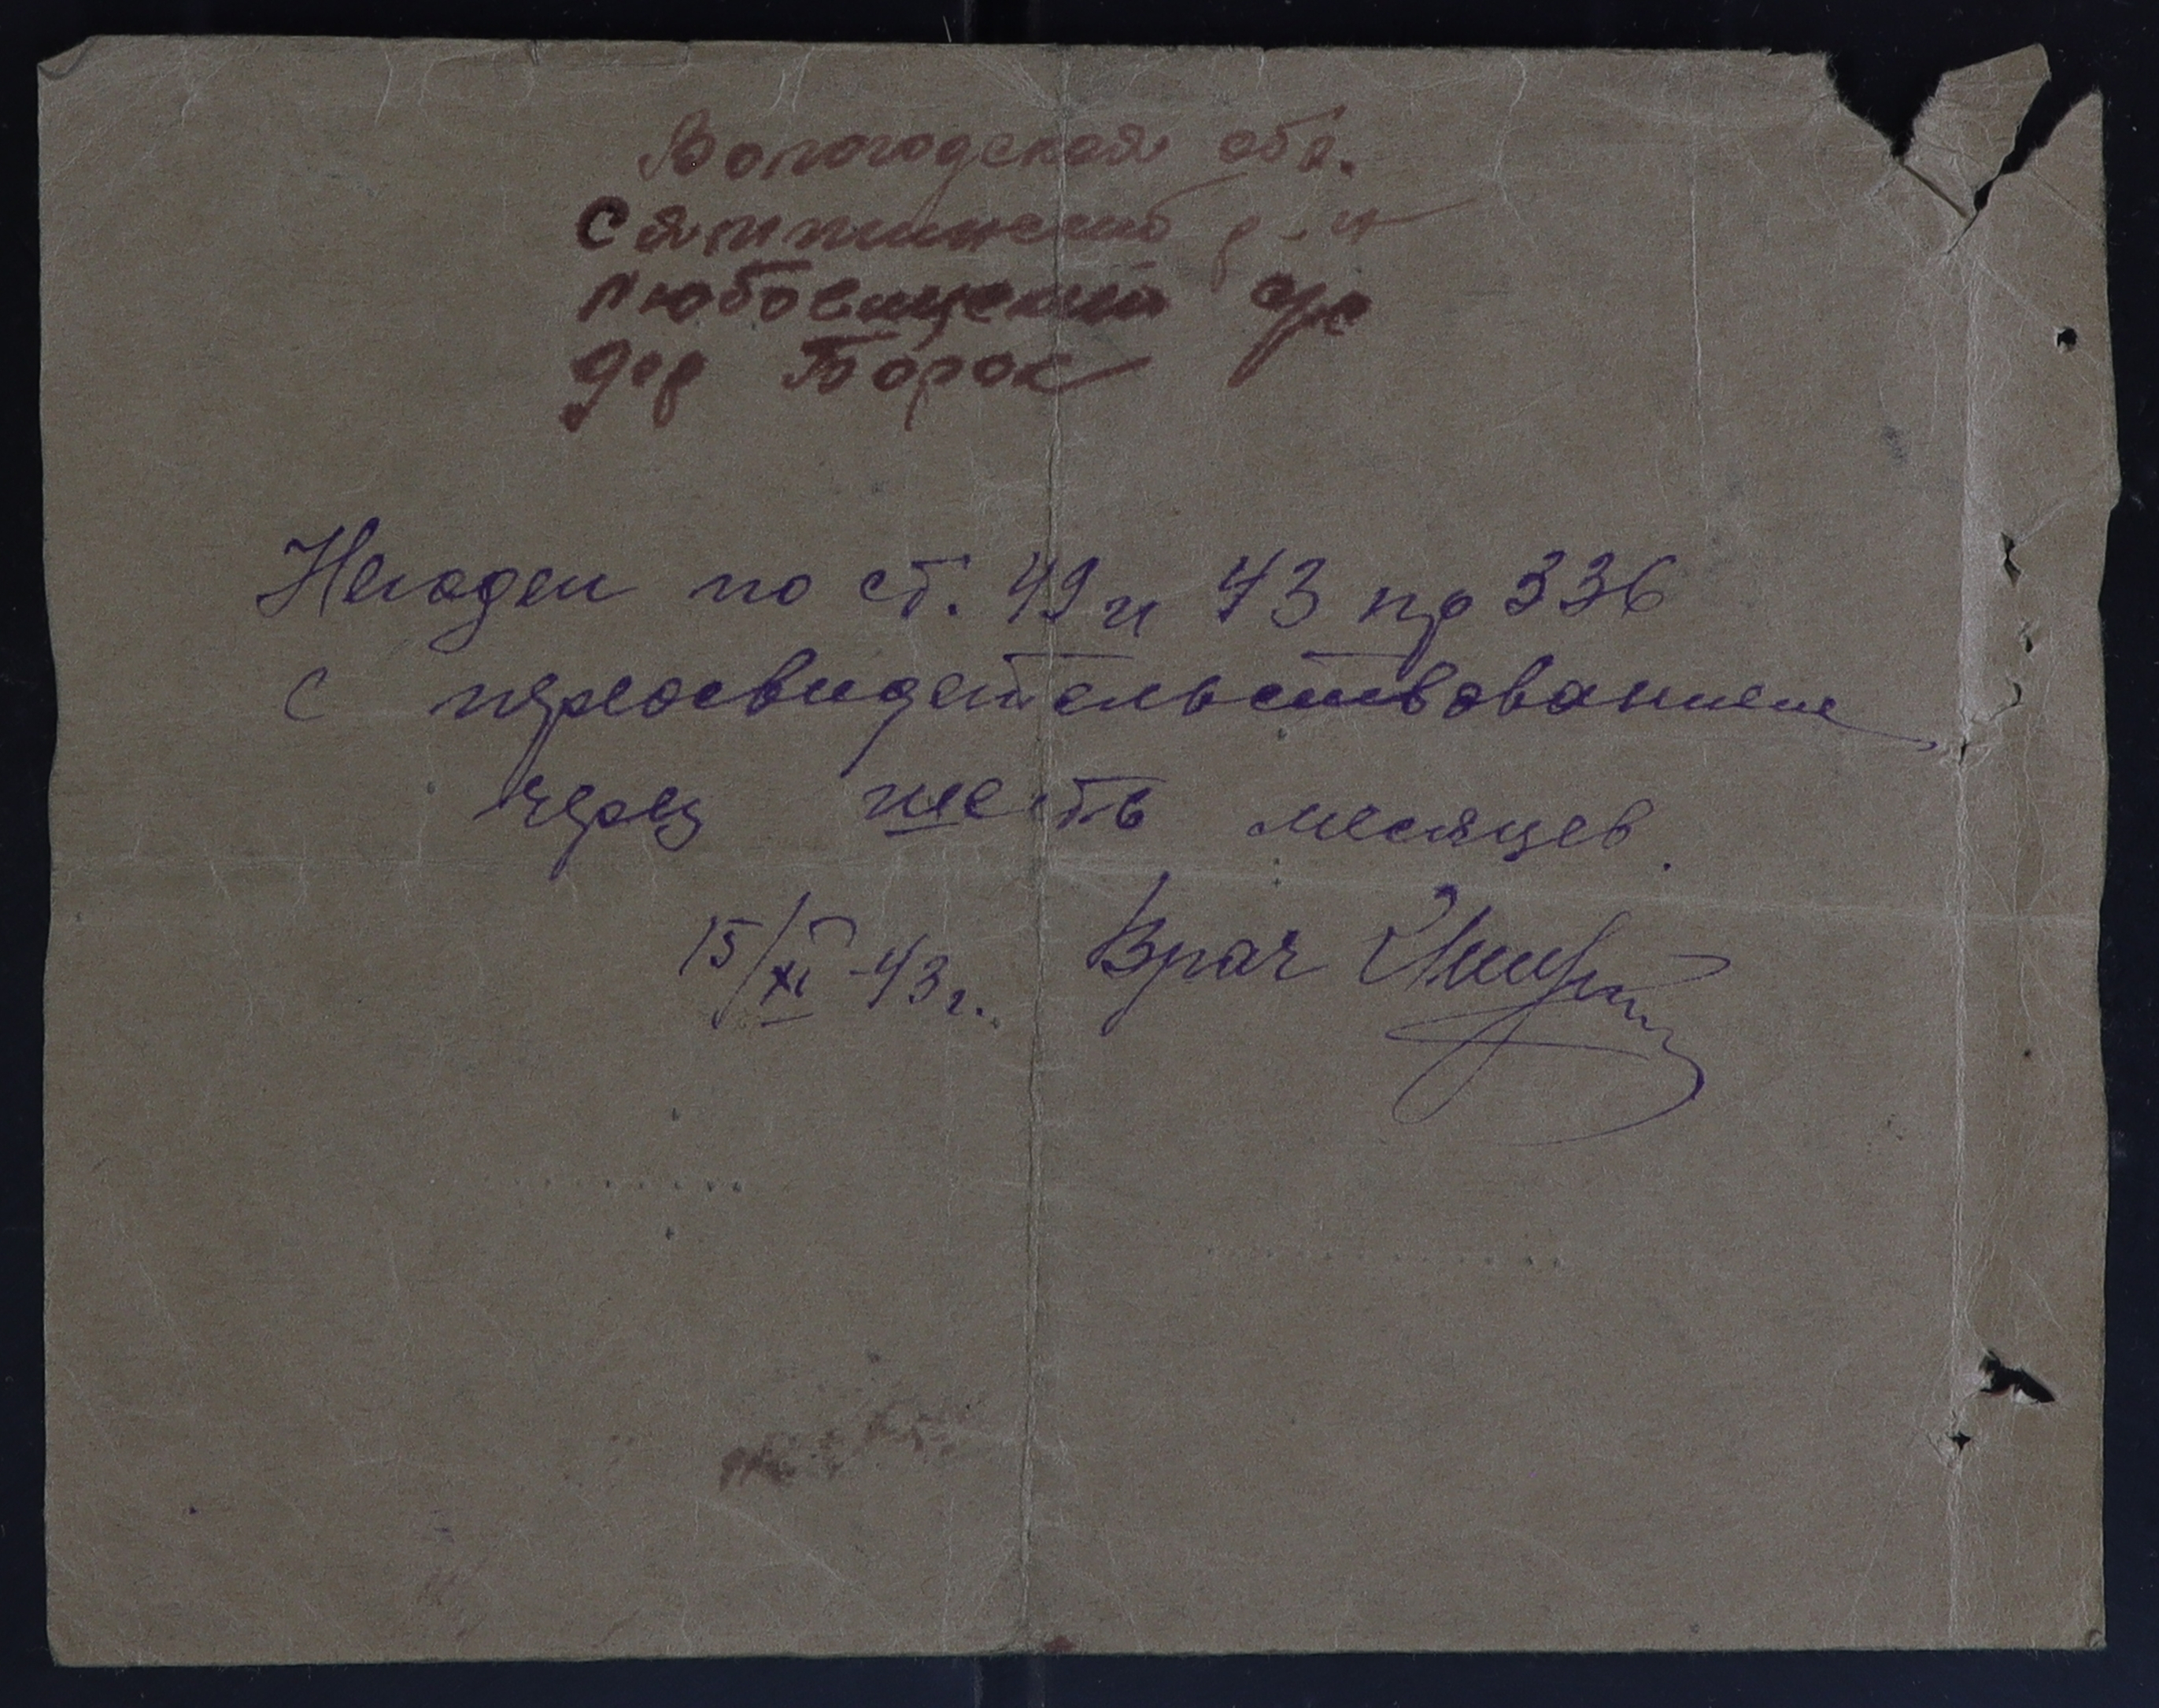 Вологодская обл.
Сямжинский р-н
Любовицкий с/с
дер Борок
Негоден по ст. 49 и 43 пр 336
с переосвидетельствованием
через шесть месяцев.
15/XI-43 г. Врач